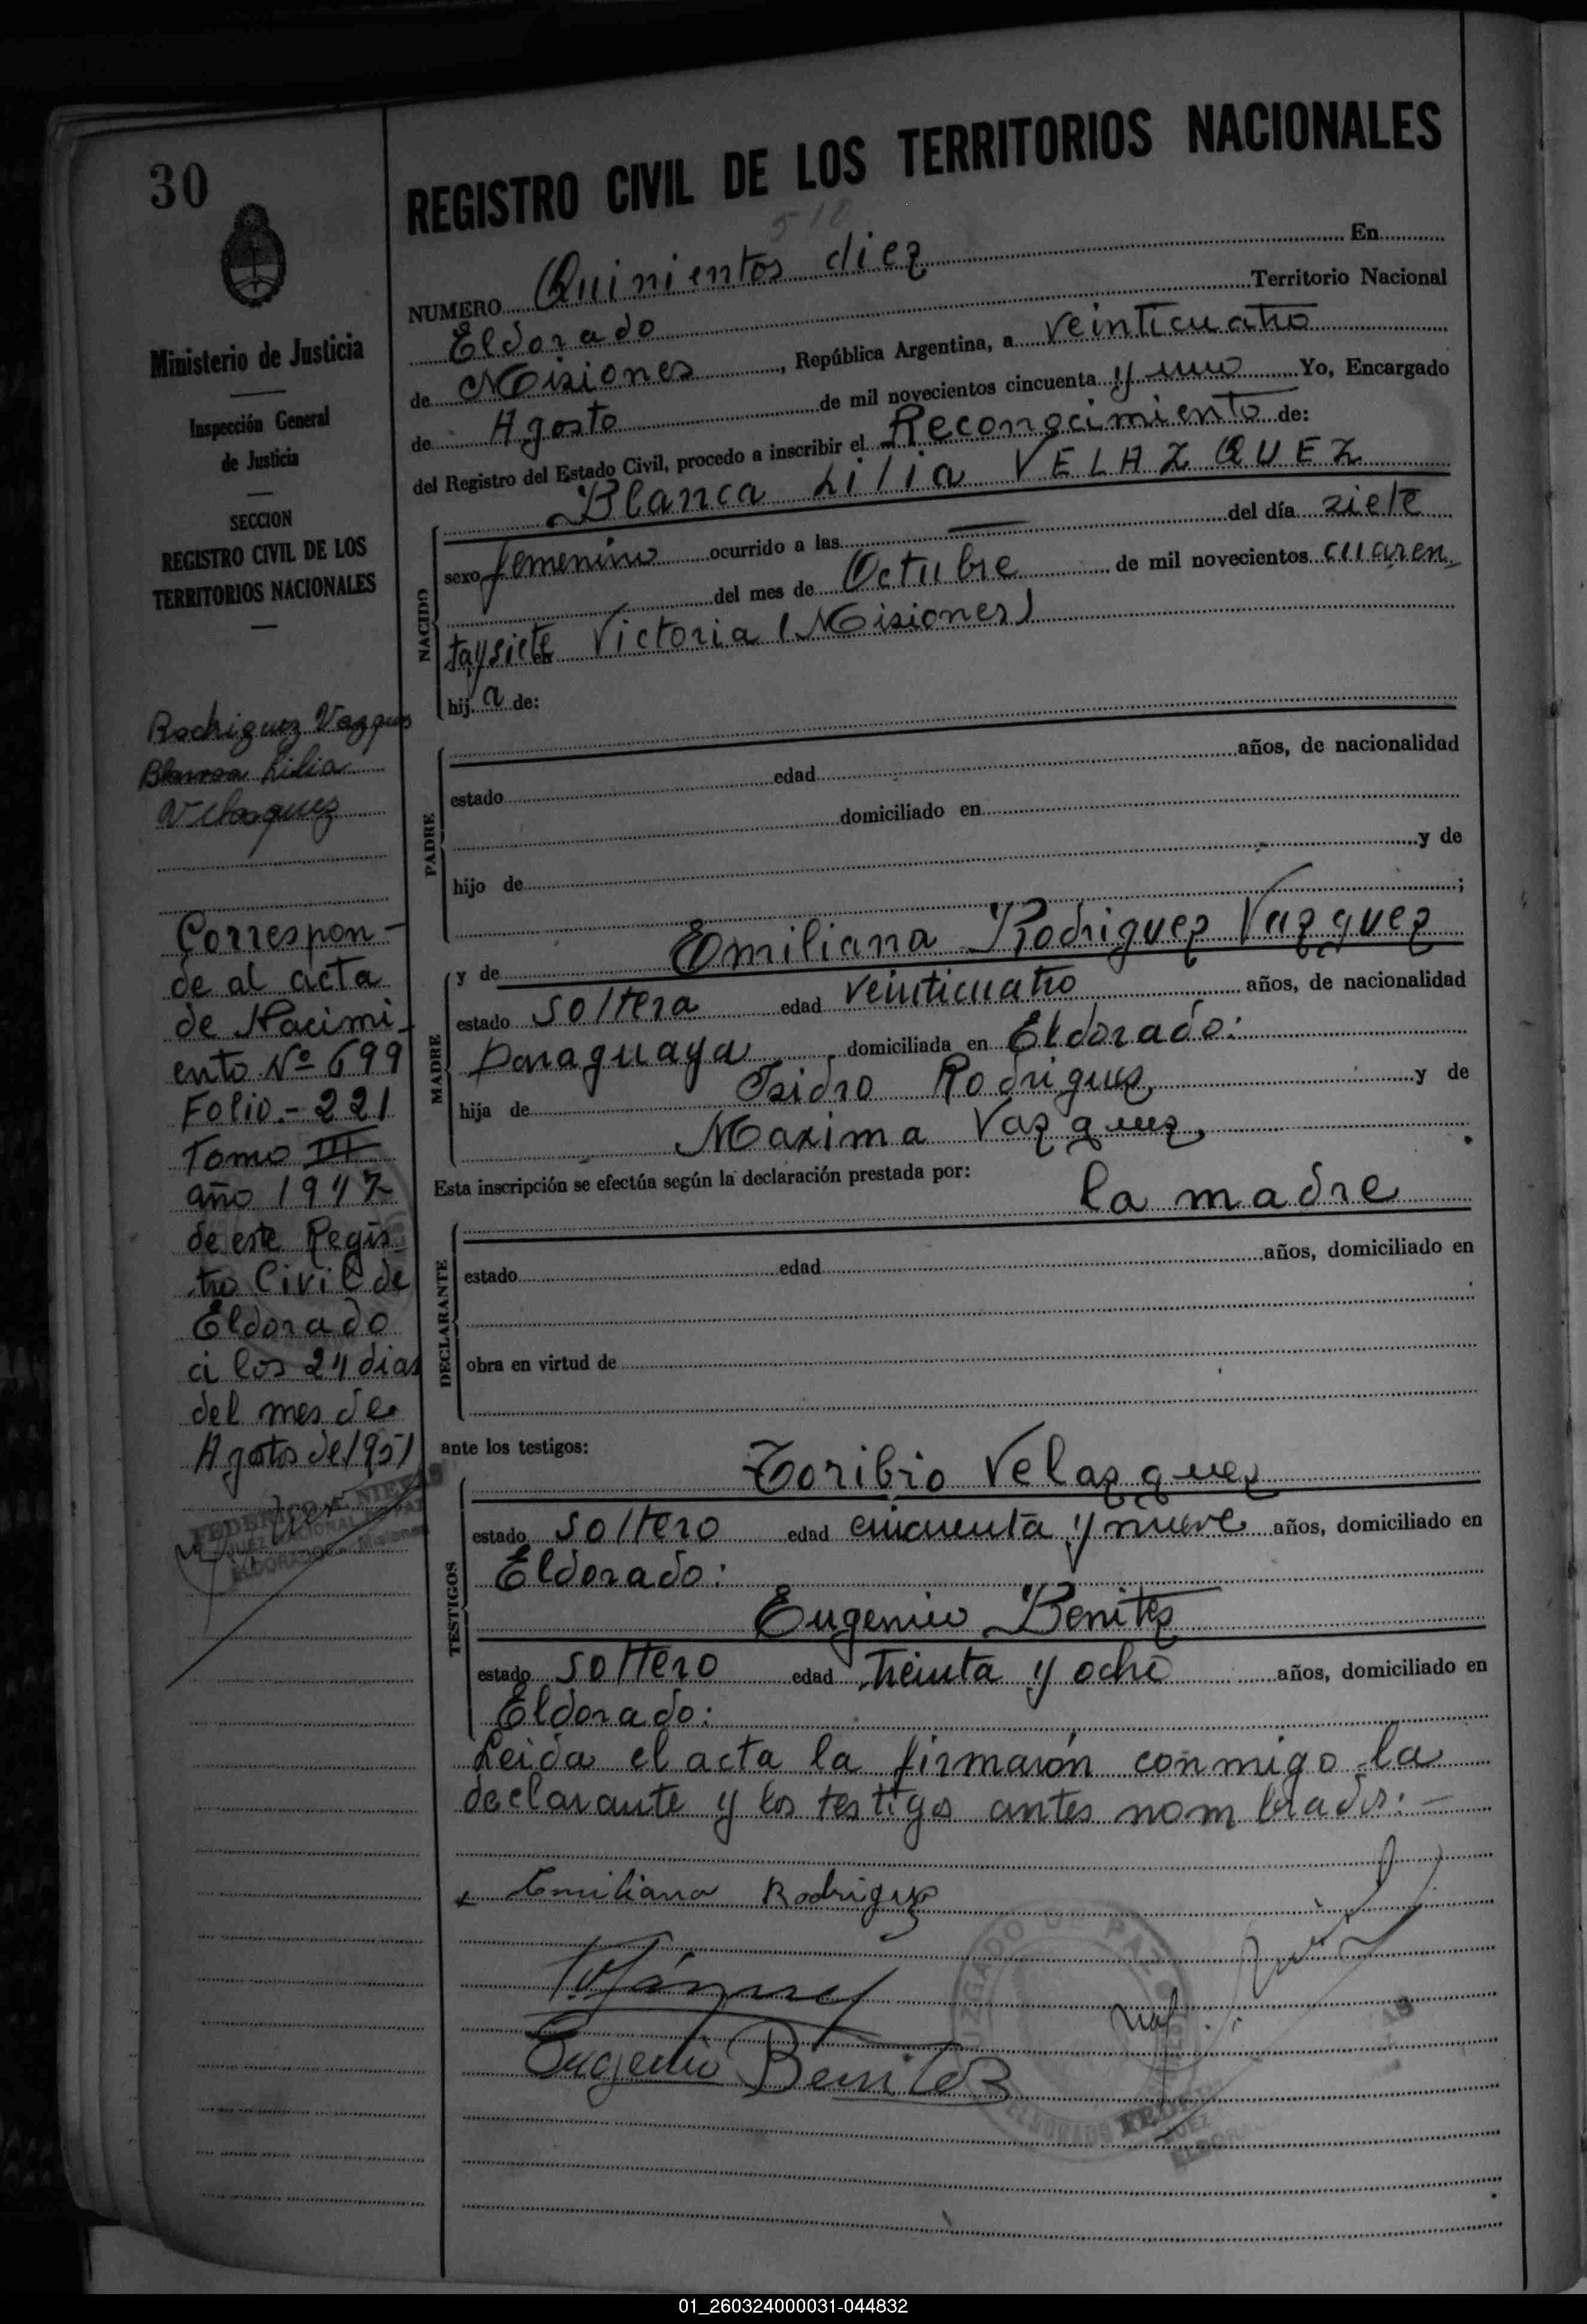 30
Ministerio de Justicia
Inspección General
de Justicia
SECCION
REGISTRO CIVIL DE LOS
TERRITORIOS NACIONALES
Rodriguez Vazquez
Blanca Lilia
Velasquez
Correspon-
de al acta
de Nacimi-
ento Nº 699
Folio.- 221
Tomo III
año 1947
de este Regis-
tro Civil de
Eldorado
a los 24 dias
del mes de
Agosto de 1951
REGISTRO CIVIL DE LOS TERRITORIOS NACIONALES
510
NUMERO Quinientos diez En
Eldorado Territorio Nacional
de Misiones, República Argentina, a veinticuatro
de Agosto de mil novecientos cincuenta y uno Yo, Encargado
del Registro del Estado Civil, procedo a inscribir el Reconocimiento de:
Blanca Lilia VELAZQUEZ
NACIDO
sexo femenino ocurrido a las — del día siete
del mes de Octubre de mil novecientos cuaren-
taysiete en Victoria (Misiones)
hija de:
PADRE
estado edad años, de nacionalidad
domiciliado en
hijo de y de
;
MADRE
y de Emiliana Rodriguez Vazquez
estado soltera edad veinticuatro años, de nacionalidad
paraguaya, domiciliada en Eldorado:
hija de Isidro Rodriguez, y de
Maxima Vazquez,
Esta inscripción se efectúa según la declaración prestada por:
la madre
DECLARANTE
estado edad años, domiciliado en
obra en virtud de
ante los testigos:
TESTIGOS
Toribio Velazquez
estado soltero edad cincuenta y nueve años, domiciliado en
Eldorado:
Eugenio Benitez
estado soltero edad treinta y ocho años, domiciliado en
Eldorado:
Leida el acta la firmarón conmigo la
declarante y los testigos antes nombrados.-
Emiliana Rodriguez
Eugenio Benitez
JUZGADO DE PAZ
ELDORADO
01_260324000031-044832